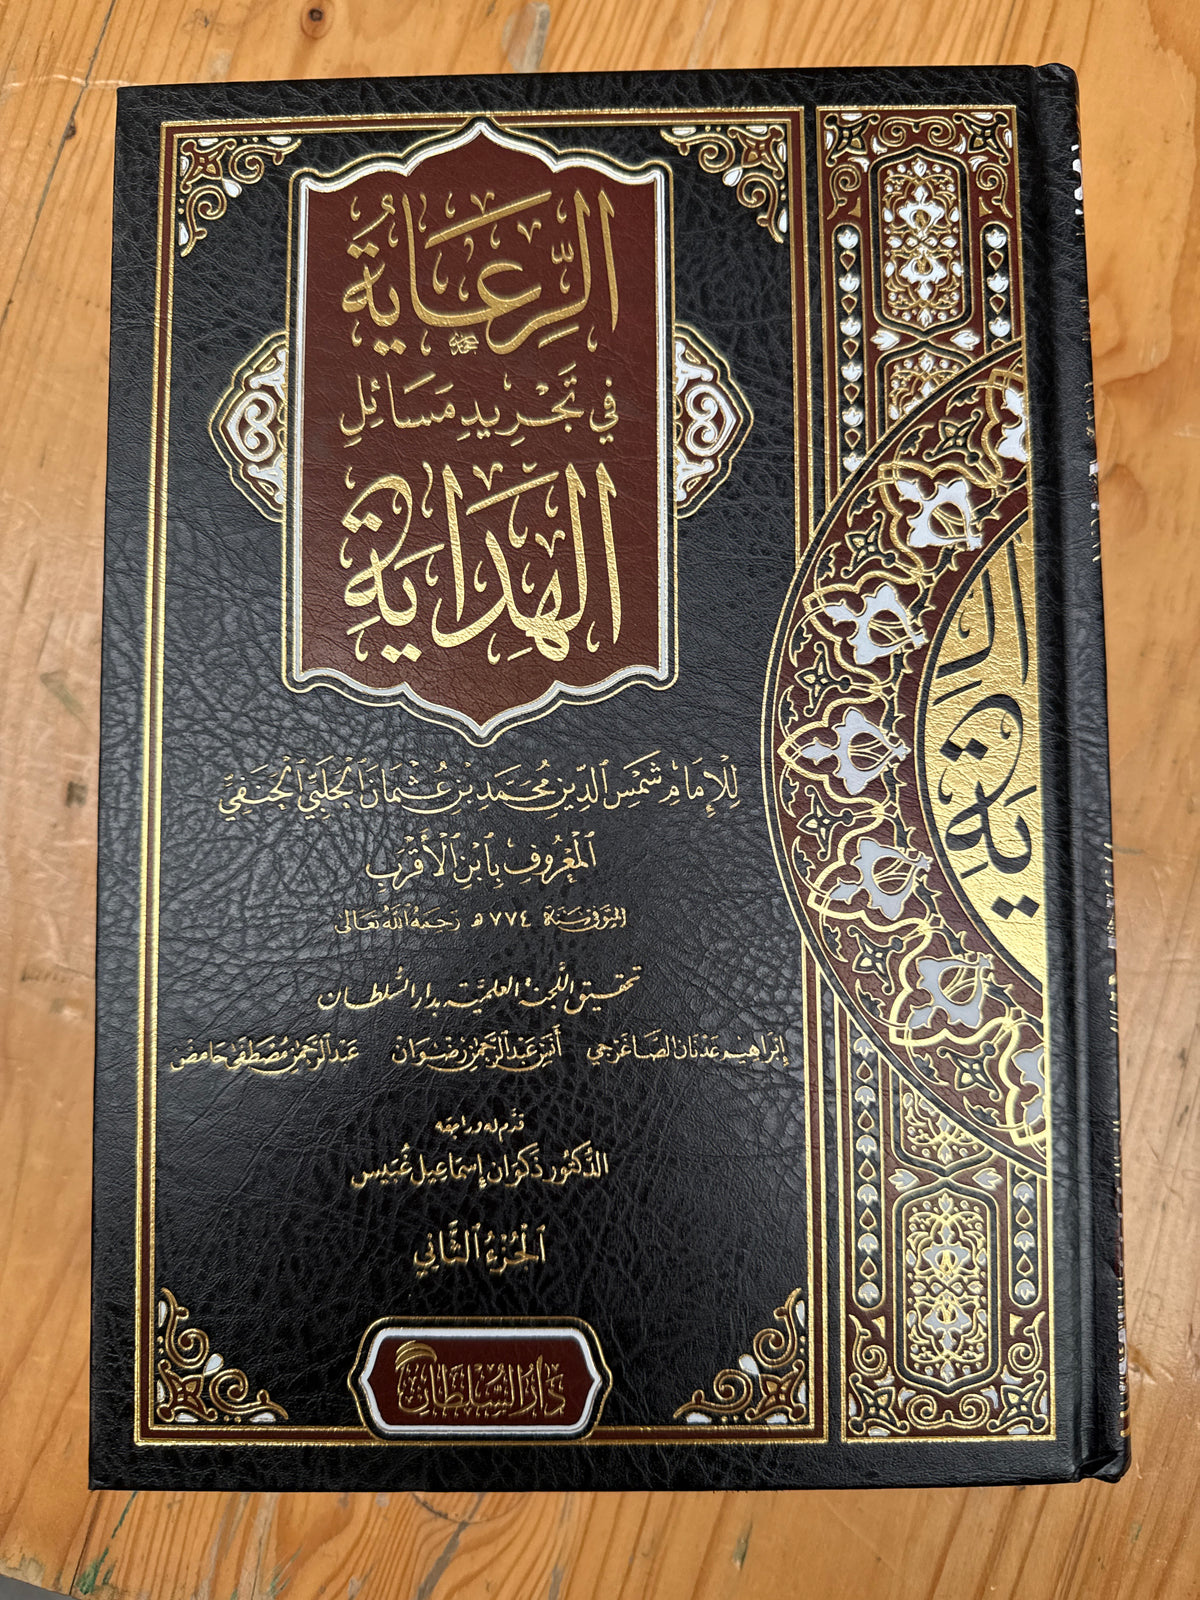 الرِّعَايَةُ
فِي تَجْرِيدِ مَسَائِلِ
الْهِدَايَةِ
لِلْإِمَامِ شَمْسِ الدِّينِ مُحَمَّدِ بْنِ عُثْمَانَ الْحَلَبِيِّ الْحَنَفِيِّ
الْمَعْرُوفِ بِابْنِ الْأَقْرَبِ
المتوفى سنة ٧٧٤ هـ رَحِمَهُ اللهُ تَعَالَى
تحقيق اللجنة العلمية بدار السلطان
إبراهيم عدنان الصاغرجي أنس عبد الرحمن رضوان عبد الرحمن مصطفى حامض
قدّم له وراجعه
الدكتور ذكوان إسماعيل غبيس
الْجُزْءُ الثَّانِي
دَارُ السُّلْطَانِ